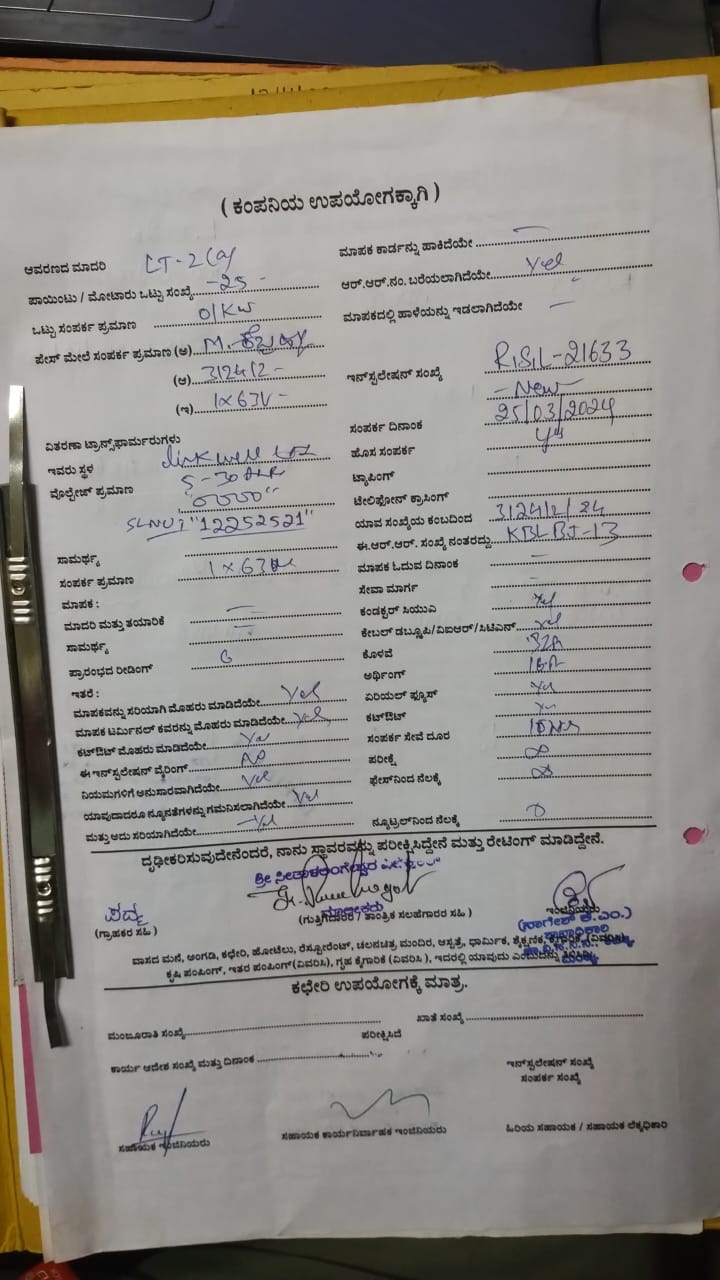 ( ಕಂಪನಿಯ ಉಪಯೋಗಕ್ಕಾಗಿ )
ಆವರಣದ ಮಾದರಿ LT-2(a)
ಪಾಯಿಂಟು / ಮೋಟಾರು ಒಟ್ಟು ಸಂಖ್ಯೆ -25-
ಒಟ್ಟು ಸಂಪರ್ಕ ಪ್ರಮಾಣ 01KW
ಪೇಸ್ ಮೇಲೆ ಸಂಪರ್ಕ ಪ್ರಮಾಣ (ಅ)
(ಆ) 3124/2-
(ಇ) 1x63V-
ವಿತರಣಾ ಟ್ರಾನ್ಸ್‌ಫಾರ್ಮರುಗಳು
ಇವರು ಸ್ಥಳ Linkwell
ವೋಲ್ಟೇಜ್ ಪ್ರಮಾಣ 5-30
SLNO: "12252521"
ಸಾಮರ್ಥ್ಯ
ಸಂಪರ್ಕ ಪ್ರಮಾಣ 1x63
ಮಾಪಕ :
ಮಾದರಿ ಮತ್ತು ತಯಾರಿಕೆ
ಸಾಮರ್ಥ್ಯ
ಪ್ರಾರಂಭದ ರೀಡಿಂಗ್ 0
ಇತರೆ :
ಮಾಪಕವನ್ನು ಸರಿಯಾಗಿ ಮೊಹರು ಮಾಡಿದೆಯೇ Yes
ಮಾಪಕ ಟರ್ಮಿನಲ್ ಕವರನ್ನು ಮೊಹರು ಮಾಡಿದೆಯೇ Yes
ಕಟ್‌ಔಟ್ ಮೊಹರು ಮಾಡಿದೆಯೇ Yes
ಈ ಇನ್‌ಸ್ಟಲೇಷನ್ ವೈರಿಂಗ್ NO
ನಿಯಮಗಳಿಗೆ ಅನುಸಾರವಾಗಿದೆಯೇ Yes
ಯಾವುದಾದರೂ ನ್ಯೂನತೆಗಳನ್ನು ಗಮನಿಸಲಾಗಿದೆಯೇ Yes
ಮತ್ತು ಅದು ಸರಿಯಾಗಿದೆಯೇ Yes
ಮಾಪಕ ಕಾರ್ಡನ್ನು ಹಾಕಿದೆಯೇ
ಆರ್.ಆರ್.ನಂ. ಬರೆಯಲಾಗಿದೆಯೇ Yes
ಮಾಪಕದಲ್ಲಿ ಹಾಳೆಯನ್ನು ಇಡಲಾಗಿದೆಯೇ
ಇನ್‌ಸ್ಟಲೇಷನ್ ಸಂಖ್ಯೆ RJSIL-21633
-New-
ಸಂಪರ್ಕ ದಿನಾಂಕ 25/03/2024
ಹೊಸ ಸಂಪರ್ಕ Yes
ಟ್ಯಾಪಿಂಗ್
ಟೆಲಿಫೋನ್ ಕ್ರಾಸಿಂಗ್
ಯಾವ ಸಂಖ್ಯೆಯ ಕಂಬದಿಂದ 3124/2/24
ಈ.ಆರ್.ಆರ್. ಸಂಖ್ಯೆ ನಂತರದ್ದು KBLBJ-13
ಮಾಪಕ ಓದುವ ದಿನಾಂಕ
ಸೇವಾ ಮಾರ್ಗ
ಕಂಡಕ್ಟರ್ ಸಿಯುಎ Yes
ಕೇಬಲ್ ಡಬ್ಲ್ಯೂಪಿ/ವಿಐಆರ್/ಸಿಟಿಎಸ್ Yes
ಕೊಳವೆ
ಅರ್ಥಿಂಗ್
ಏರಿಯಲ್ ಫ್ಯೂಸ್ Yes
ಕಟ್‌ಔಟ್ Yes
ಸಂಪರ್ಕ ಸೇವೆ ದೂರ
ಪರೀಕ್ಷೆ ∞
ಫೇಸ್‌ನಿಂದ ನೆಲಕ್ಕೆ ∞
ನ್ಯೂಟ್ರಲ್‌ನಿಂದ ನೆಲಕ್ಕೆ 0
ದೃಢೀಕರಿಸುವುದೇನೆಂದರೆ, ನಾನು ಸ್ಥಾವರವನ್ನು ಪರೀಕ್ಷಿಸಿದ್ದೇನೆ ಮತ್ತು ರೇಟಿಂಗ್ ಮಾಡಿದ್ದೇನೆ.
ಮಾಲೀಕರು
(ಗ್ರಾಹಕರ ಸಹಿ) (ಗುತ್ತಿಗೆದಾರರ / ತಾಂತ್ರಿಕ ಸಲಹೆಗಾರರ ಸಹಿ ) ಇಂಜಿನಿಯರು
(ನಾಗೇಶ್ ಕೆ.ಎಂ.)
ವಾಸದ ಮನೆ, ಅಂಗಡಿ, ಕಛೇರಿ, ಹೋಟೆಲು, ರೆಸ್ಟೋರೆಂಟ್, ಚಲನಚಿತ್ರ ಮಂದಿರ, ಆಸ್ಪತ್ರೆ, ಧಾರ್ಮಿಕ, ಶೈಕ್ಷಣಿಕ, ಕೈಗಾರಿಕೆ (ವಿವರಿಸಿ)
ಕೃಷಿ ಪಂಪಿಂಗ್, ಇತರ ಪಂಪಿಂಗ್(ವಿವರಿಸಿ), ಗೃಹ ಕೈಗಾರಿಕೆ (ವಿವರಿಸಿ ), ಇದರಲ್ಲಿ ಯಾವುದು ಎಂಬುದನ್ನು ತಿಳಿಸಿರಿ.
ಕಛೇರಿ ಉಪಯೋಗಕ್ಕೆ ಮಾತ್ರ.
ಮಂಜೂರಾತಿ ಸಂಖ್ಯೆ ಖಾತೆ ಸಂಖ್ಯೆ
ಪರೀಕ್ಷಿಸಿದೆ
ಕಾರ್ಯ ಆದೇಶ ಸಂಖ್ಯೆ ಮತ್ತು ದಿನಾಂಕ ಇನ್‌ಸ್ಟಲೇಷನ್ ಸಂಖ್ಯೆ
ಸಂಪರ್ಕ ಸಂಖ್ಯೆ
ಸಹಾಯಕ ಇಂಜಿನಿಯರು ಸಹಾಯಕ ಕಾರ್ಯನಿರ್ವಾಹಕ ಇಂಜಿನಿಯರು ಹಿರಿಯ ಸಹಾಯಕ / ಸಹಾಯಕ ಲೆಕ್ಕಾಧಿಕಾರಿ